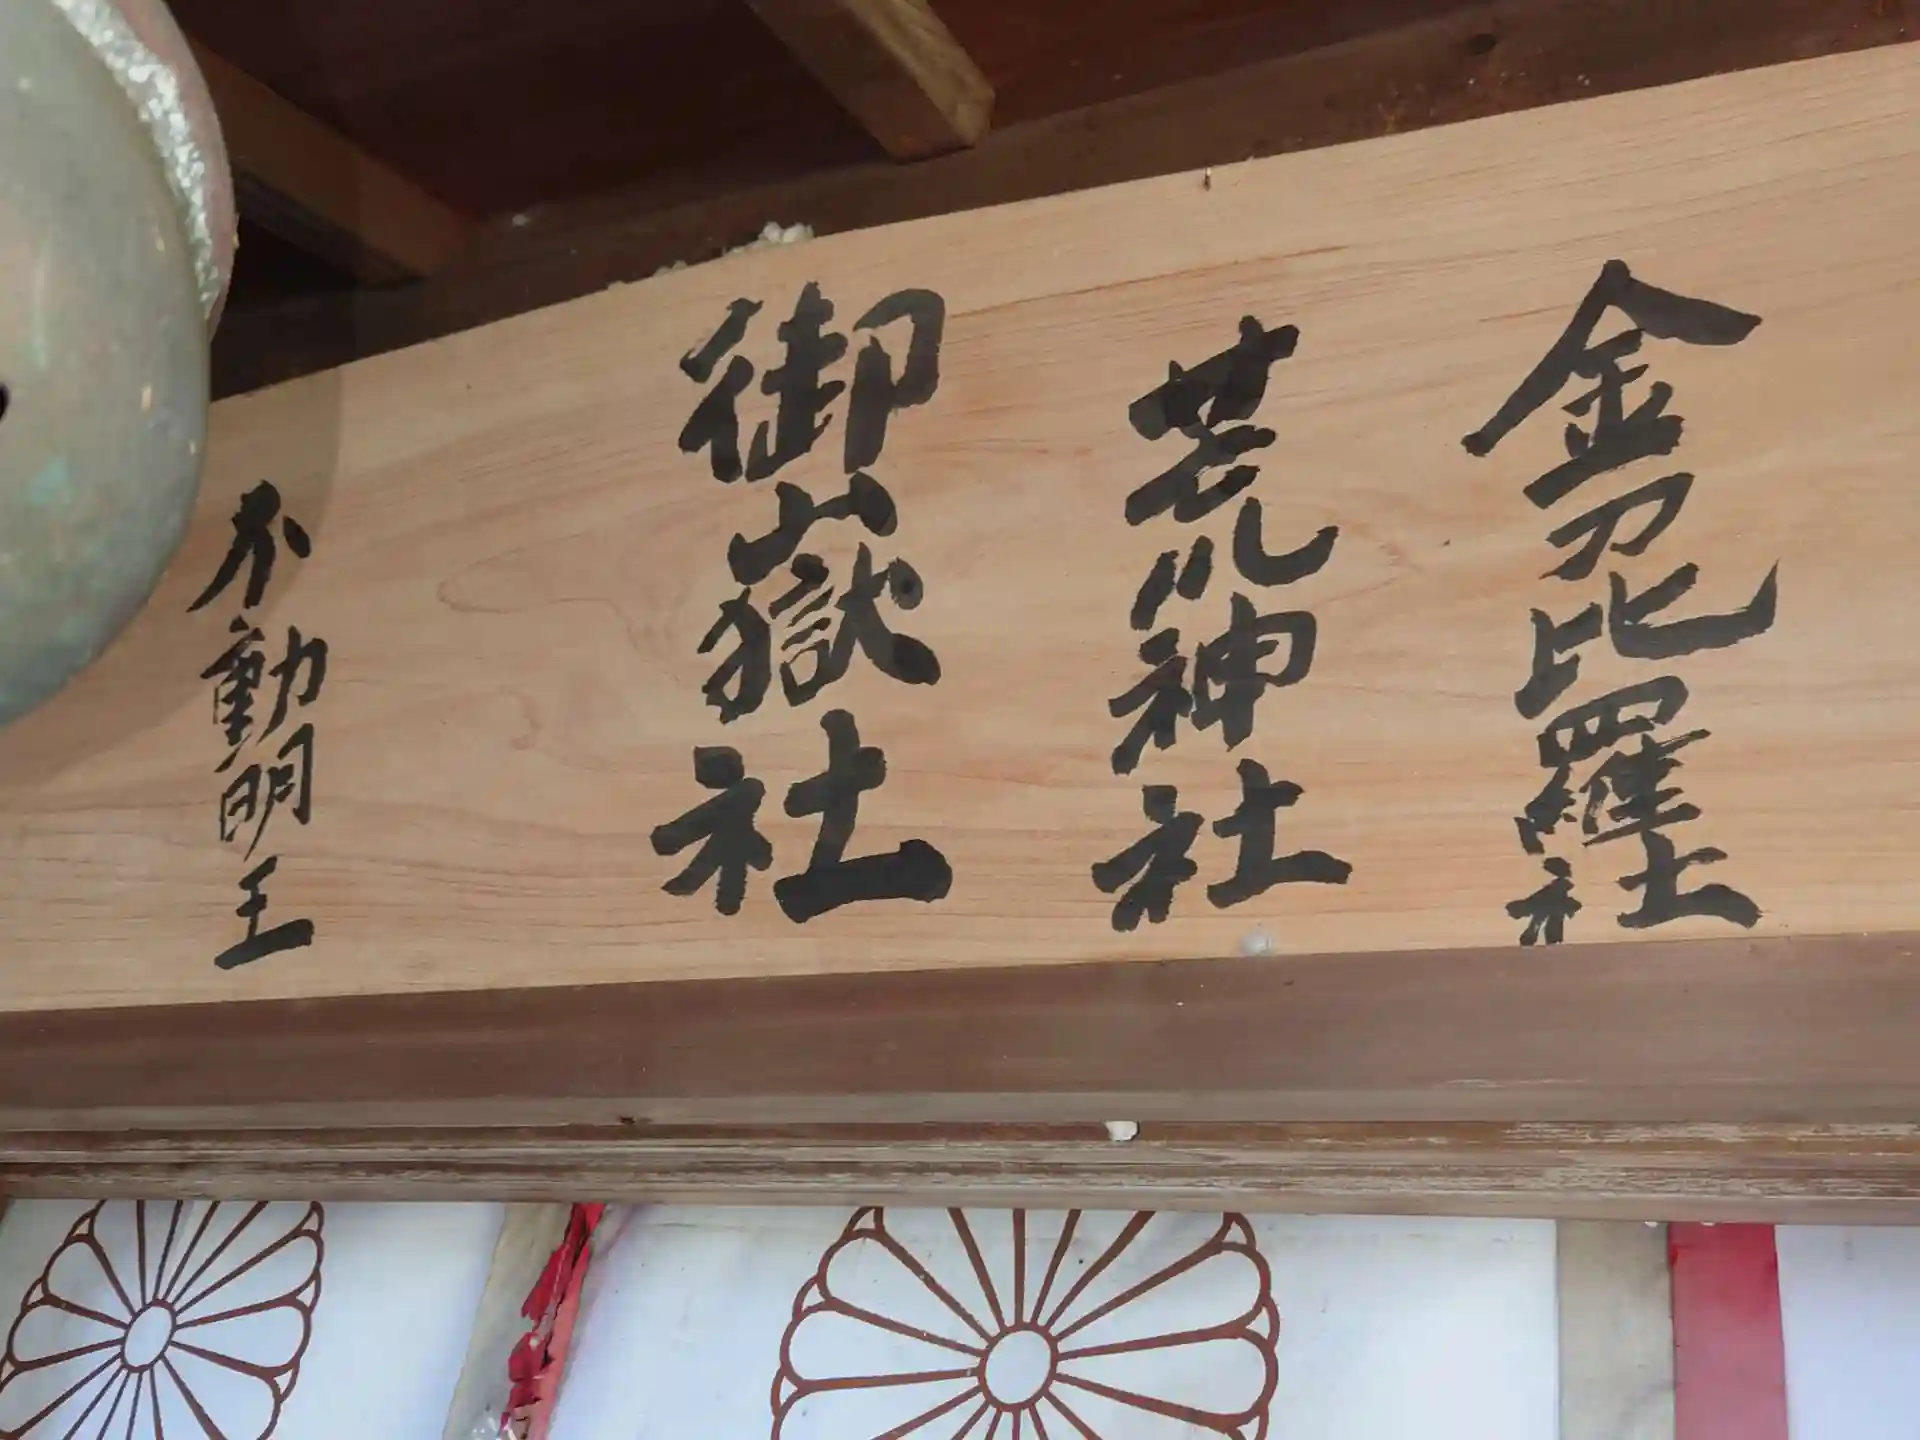 金刀比羅社
荒神社
御嶽社
不動明王